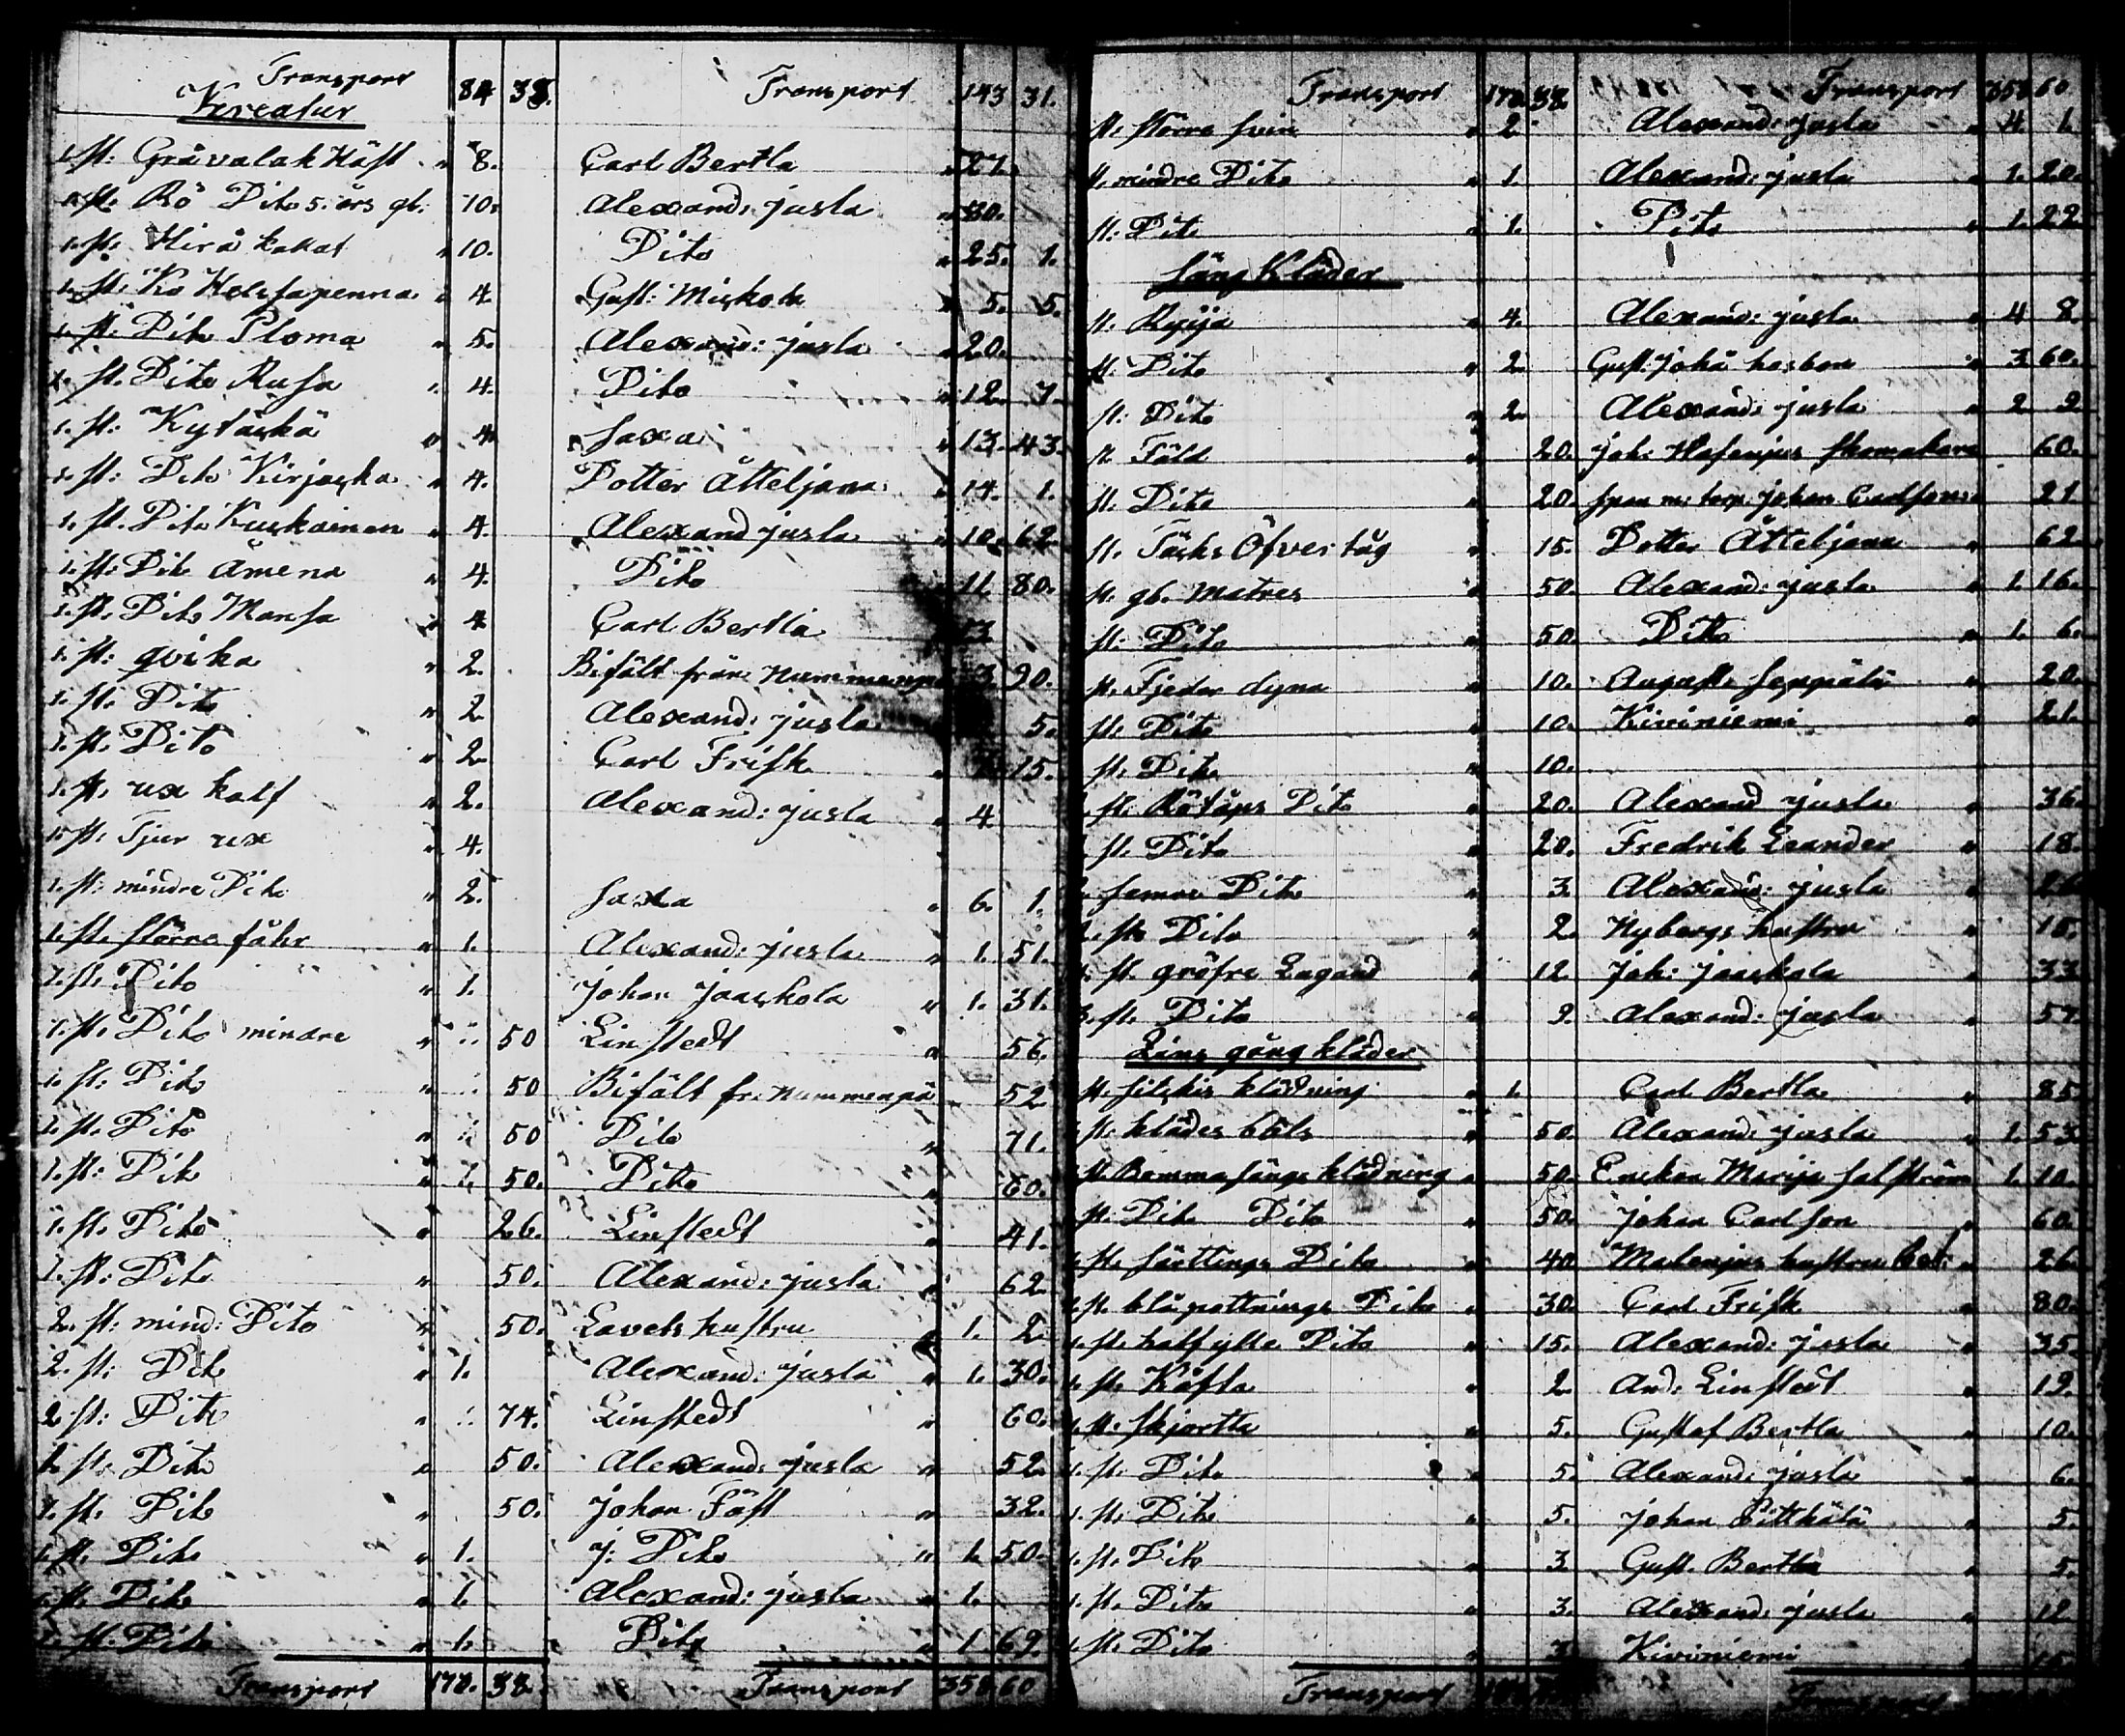 Transport 84 38. Transport 143 31.
Kreatur
1. st: Gråvalak Häst " 8. Carl Bertla " 27.
1. st. Rö Dito 5. års gl. 70. Alexand: jusla " 80.
1. st. Hirå kallat " 10. Dito " 25. 1.
1. st. Ko Helesapenna " 4. Gust: Miskola " 5. 5.
1. st: Dito Ploma " 5. Alexand: jusla " 20.
1. st. Dito Rusa " 4. Dito " 12. 7.
1. st: Kytäskä " 4 Saxa " 13. 43.
1. st: Dito Kirjaska " 4. Dotter Ätteljana " 14. 1.
1. st. Dito Kuskainen " 4. Alexand jusla " 10. 62.
1. st: Dito Ämena " 4. Dito " 11. 80.
1. st. Dito Mansa " 4 Carl Bertla 13
1. st: qvika " 2. Bifält från Nummenpä 3 90.
1. st. Dito " 2 Alexand: jusla 5.
1. st. Dito " 2 Carl Frisk " 15.
1. st. ux kalf " 2. Alexand: jusla " 4
1. st. Tjur ux " 4.
1. st: mindre Dito " 2. Saxa " 6. 1.
1. st. större fåhr " 1. Alexand: jusla " 1. 51.
1. st. Dito " 1. Johan Jaaskola " 1. 31.
1. st. Dito mindre " 50 Linstedt " 56.
1. st: Dito " 50 Bifält fr. Nummenpä 52
1. st. Dito " 50 Dito " 71.
1. st: Dito " 50. Dito " 60.
1. st. Dito " 26. Linstedt " 41.
1. st: Dito " 50. Alexand: jusla " 62
2. st: mind: Dito " 50. Lavels hustru " 1. 2
2. st: Dito " 1. Alexand: jusla " 1. 30.
2 st: Dito " 74. Linstedt " 60.
1. st: Dito " 50. Alexand: jusla " 52
1. st. Dito " 50. Johan Fäst " 32.
1. st. Dito " 1. J: Dito " 1. 50.
1. st. Dito " 1. Alexand: jusla " 1.
1. st. Dito " 1. Dito " 1 69.
Transport 178. 38. Transport 358 60
Transport 178. 38. Transport 358 60
st. större svin " 2 Alexand: jusla " 4. 1.
st. mindre Dito " 1. Alexand: jusla " 1. 20.
st: Dito " 1. Dito " 1. 22
Säng Kläder
st. Ryija " 4. Alexand: jusla " 4 8.
st. Dito " 2 Gust: Johä hosbon " 3 60.
st: Dito " 2 Alexand: jusla " 2 2
st. Täld " 20. Joh: Hasenjus skomakare 60.
st. Dito " 20. Johan Carlsons 21
st. Täcks Öfvertåg " 15. Dotter Ätteljana " 62
st. gl. Matres " 50 Alexand: jusla " 1. 16.
st: Dito " 50. Dito " 1. 6.
st. Fjeder dyna " 10. August Seppälä " 20.
st: Dito " 10. Kiviniemi " 21.
st: Dito " 10.
st. Rötåps Dito " 20. Alexand jusla " 36.
st. Dito " 20. Fredrik Leander " 18.
Semre Dito " 3. Alexand: jusla " 26
st. Dito " 2. Nybergs hustru " 15.
st. gröfre Lagand " 12. Joh: Jaaskola " 33
3. st. Dito " 9. Alexand: jusla " 57.
Lins gång kläder
st. silkis klädning " 1. Carl Bertla " 85
st. klädes bält " 50. Alexand: jusla " 1. 53
st. Bommasängs klädning " 50. Enckan Marija Salström 1. 10.
st. Dito Dito " 50. Johan Carlson " 60.
st. Särttings Dito " 40 Malenjus hustru " 26.
1. st. blåpattnings Dito " 30 Carl Frisk " 80.
1. st. halfylle Dito " 15. Alexand: jusla " 35.
1. st. Kåfta " 2 And: Linstedt " 19
1. st. skjortta " 5. Gustaf Bertla " 10.
1. st. Dito " 5. Alexand: jusla " 6.
1. st. Dito " 5. Johan Pittkälä " 5.
1. st. Dito " 3. Gust. Bertla " 5.
1. st. Dito " 3. Alexand: jusla " 12
1. st. Dito " 3 Kiviniemi " 15
Transport Transport